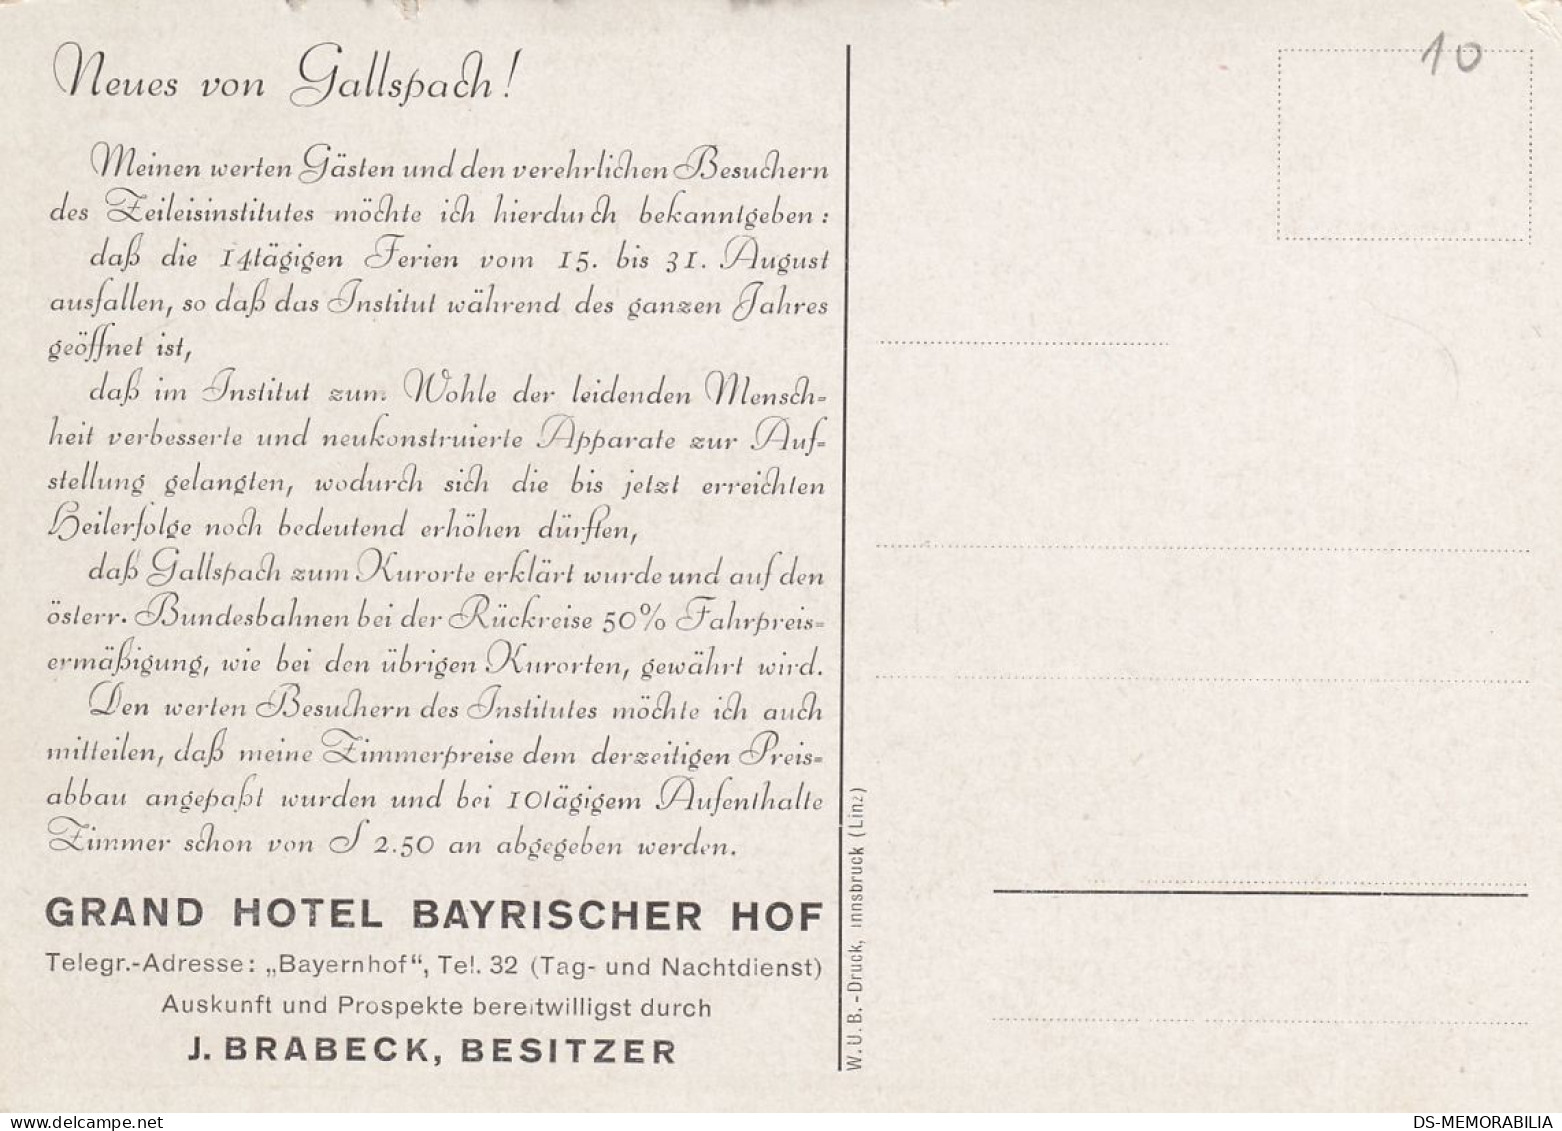 Neues von Gallspach!
Meinen werten Gästen und den verehrlichen Besuchern
des Zeileisinstitutes möchte ich hierdurch bekanntgeben:
daß die 14tägigen Ferien vom 15. bis 31. August
ausfallen, so daß das Institut während des ganzen Jahres
geöffnet ist,
daß im Institut zum Wohle der leidenden Mensch-
heit verbesserte und neukonstruierte Apparate zur Auf-
stellung gelangten, wodurch sich die bis jetzt erreichten
Heilerfolge noch bedeutend erhöhen dürften,
daß Gallspach zum Kurorte erklärt wurde und auf den
österr. Bundesbahnen bei der Rückreise 50% Fahrpreis-
ermäßigung, wie bei den übrigen Kurorten, gewährt wird.
Den werten Besuchern des Institutes möchte ich auch
mitteilen, daß meine Zimmerpreise dem derzeitigen Preis-
abbau angepaßt wurden und bei 10tägigem Aufenthalte
Zimmer schon von S 2.50 an abgegeben werden.
GRAND HOTEL BAYRISCHER HOF
Telegr.-Adresse: „Bayernhof“, Tel. 32 (Tag- und Nachtdienst)
Auskunft und Prospekte bereitwilligst durch
J. BRABECK, BESITZER
W. U. B.-Druck, Innsbruck (Linz)
10
www.delcampe.net
DS-MEMORABILIA